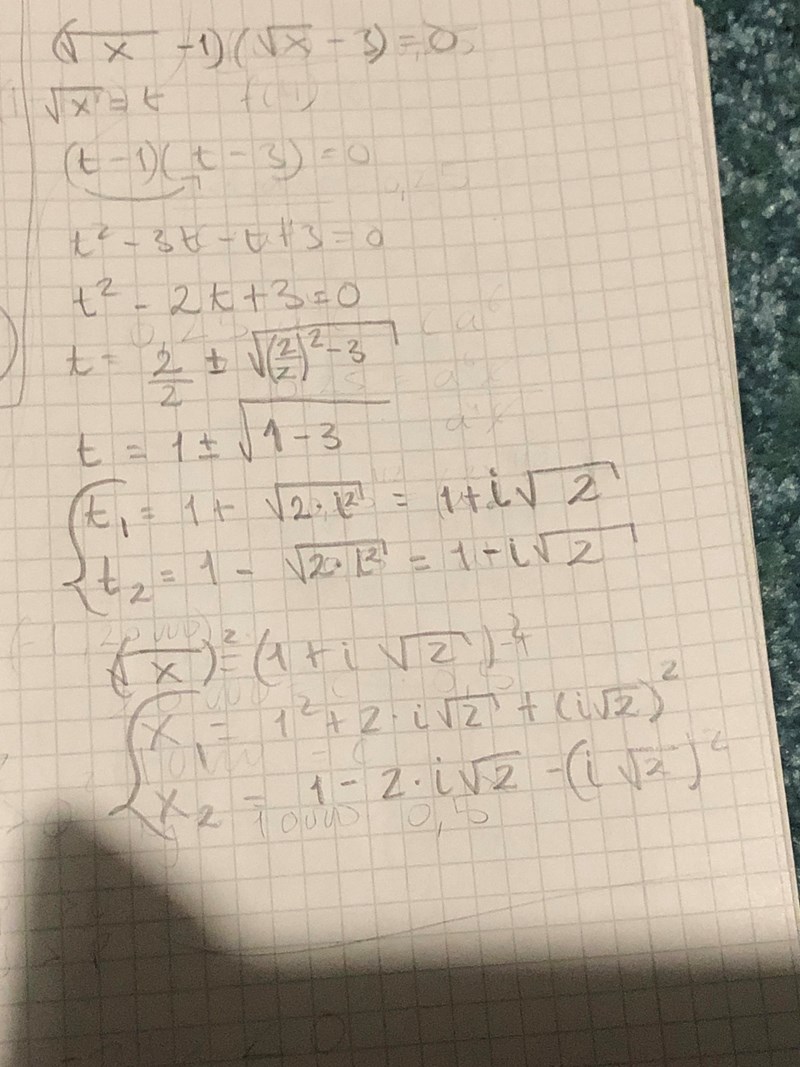 (√x - 1)(√x - 3) = 0
√x = t
(t - 1)(t - 3) = 0
t² - 3t - t + 3 = 0
t² - 2t + 3 = 0
t = 2/2 ± √((2/2)² - 3)
t = 1 ± √(1 - 3)
t₁ = 1 + √(2 · i²) = 1 + i√2
t₂ = 1 - √(2 · i²) = 1 - i√2
(√x)² = (1 + i√2)²
x₁ = 1² + 2 · i√2 + (i√2)²
x₂ = 1 - 2 · i√2 - (i√2)²